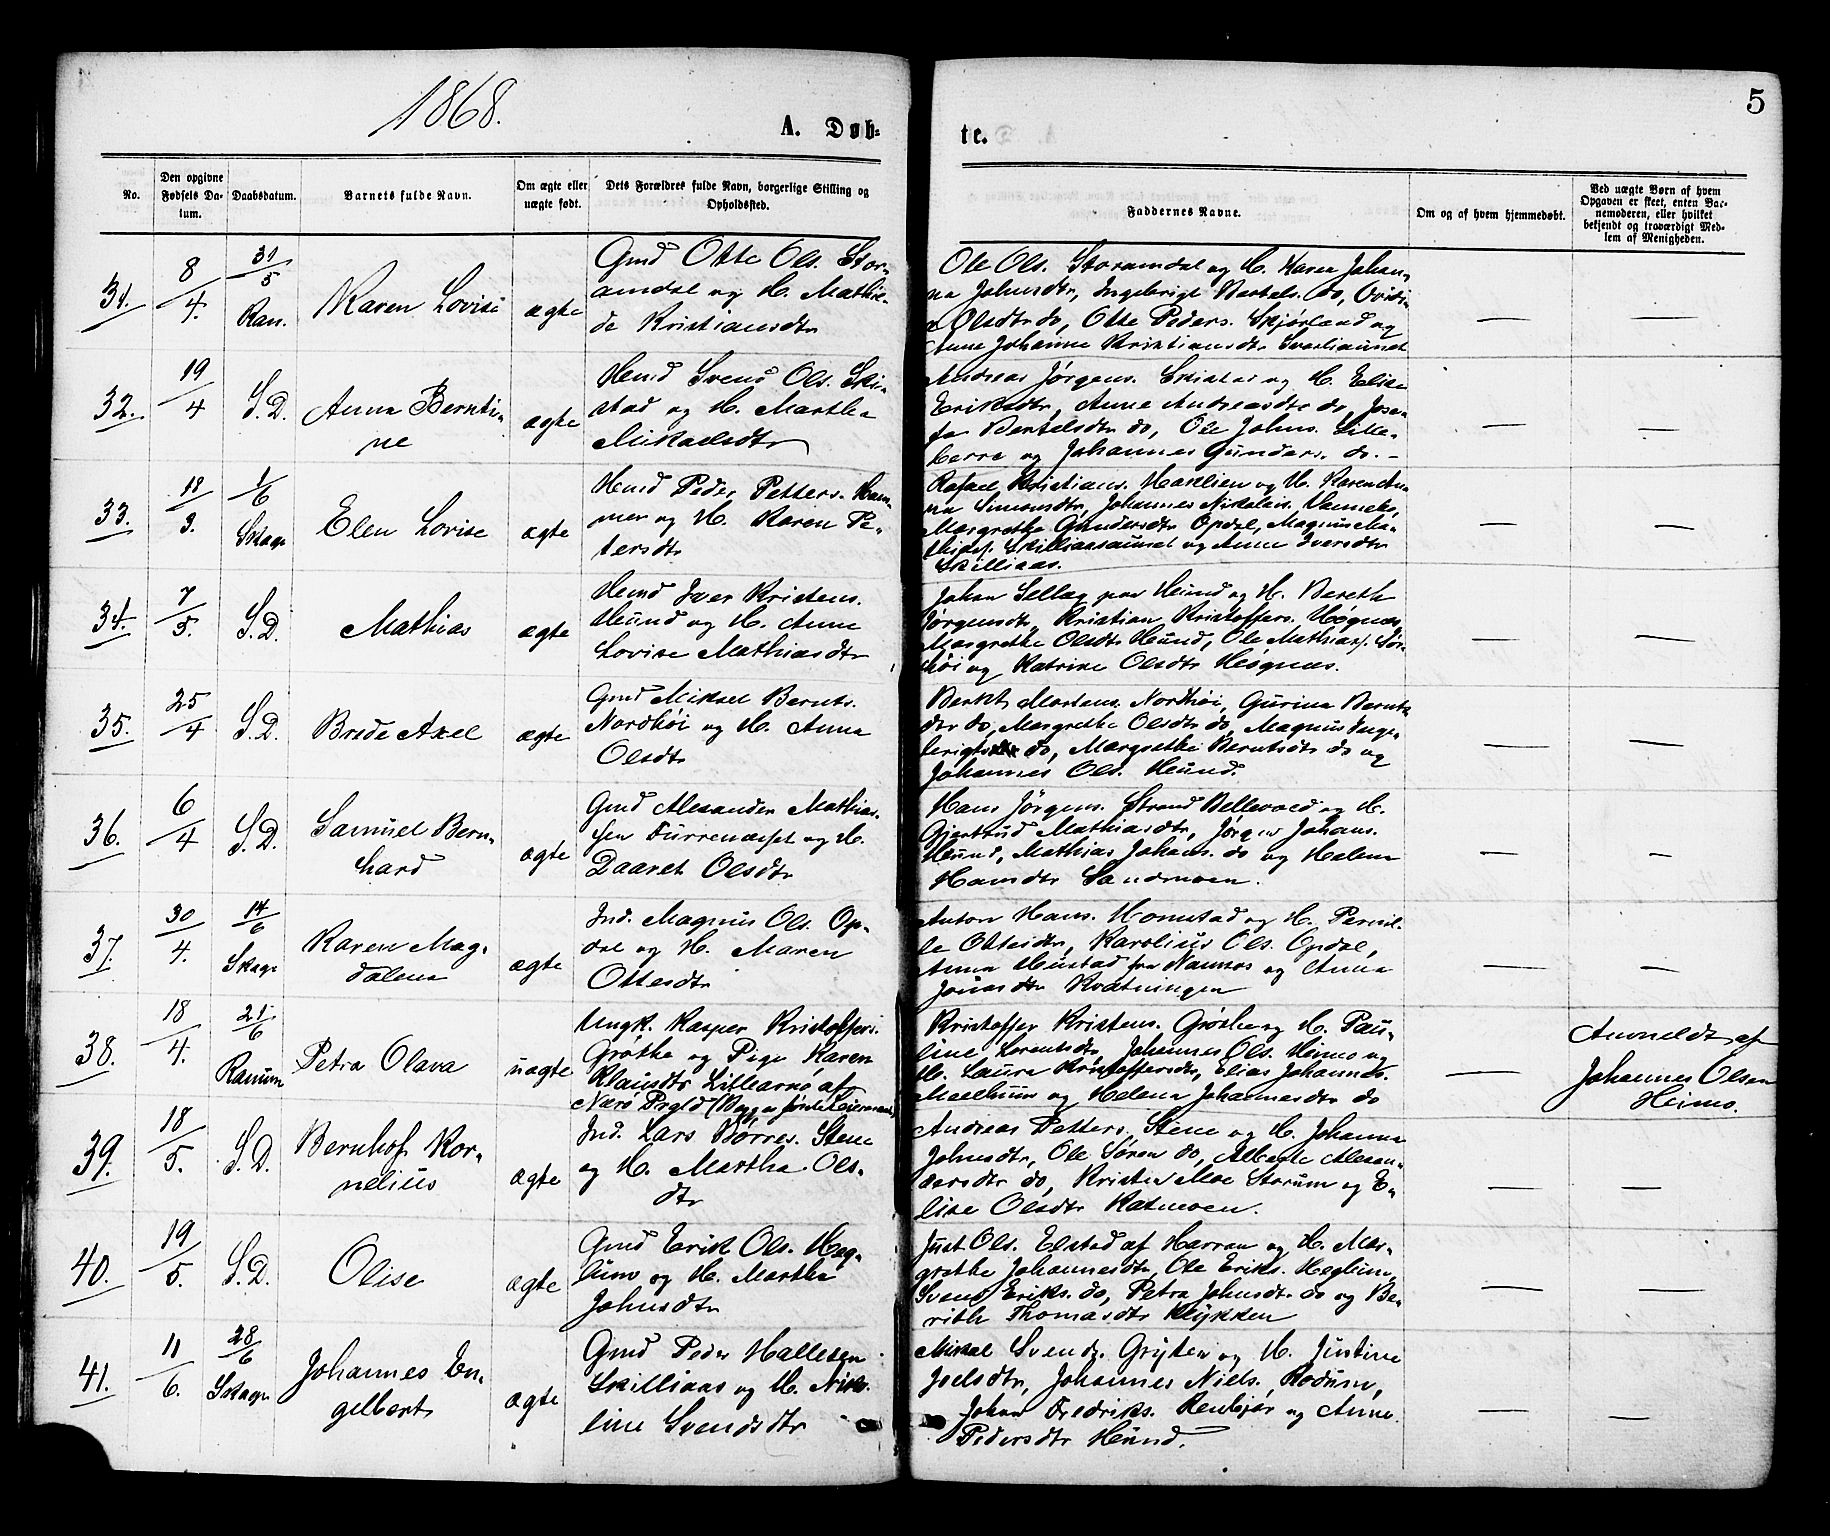 1868.
A. Døb-
te.
5
No.
Den opgivne
Fødsels Da-
tum.
Daabsdatum.
Barnets fulde Navn.
Om ægte eller
uægte født.
Dets Forældres fulde Navn, borgerlige Stilling og
Opholdssted.
Faddernes Navne.
Om og af hvem hjemmedøbt.
Ved uægte Børn af hvem
Opgaven er skeet, enten Bar-
nemoderen, eller hvilket
bekjendt og troværdigt Med-
lem af Menigheden.
31.
8/4.
31/5
Ran.
Karen Lovise
ægte
Gmd Otte Ols. Stor-
amdal og H. Mathil-
de Kristiansdtr
Ole Ols. Storamdal og H. Karen Johan-
na Johnsdtr, Ingebrigt Bertels. do,
Olsdtr do, Otte Peders. Skjørland og
Anne Johanne Kristiansdtr
— —
32.
19/4
S.D.
Anna Bernti-
ne
ægte
Hmd Svend Ols. Ski-
stad og H. Martha
Mikaelsdtr
Andreas Jørgens. og H. Elise
Eriksdtr, Anne Andreasdtr do, Jose-
fa Bertelsdtr do, Ole Johns. Lille-
berre og Johannes Gunders. do. —
— —
33.
18/3.
1/6
Skage
Elen Lovise
ægte
Hmd Peder Petters. Ham-
mer og H. Karen Pe-
tersdtr
Rafael Kristians. Haxelien og H. Karen An-
na Simonsdtr, Johannes Nikolais.
Margrethe Gundersdtr Opdal, Magnus Ma-
thias. Skilliaasaunet og Anne Iversdtr
Skilliaas.
— —
34.
7/5.
S.D.
Mathias
ægte
Hmd Iver Kristens.
Hund og H. Anne
Lovise Mathiasdtr
Johan Selleg paa Hund og H. Bereth
Jørgensdtr, Kristian Kristoffers. Høgnes,
Margrethe Olsdtr Hund, Ole Mathias. Sør-
høi og Katrine Olsdtr Høgnes.
— —
35.
25/4
S.D.
Brede Axel
ægte
Gmd Mikael Bernts.
Nordhøi og H. Anna
Olsdtr
Bernt Mortens. Nordhøi, Gurina Bernts-
dtr do, Margrethe Olsdtr do, Magnus Inge-
brigts do, Margrethe Berntsdtr do og
Johannes Ols. Hund.
— —
36.
6/4
S.D.
Samuel Bern-
hard
ægte
Gmd Alexander Mathia-
sen og H.
Daaret Olsdtr
Hans Jørgens. Strand Bellevold og H.
Gjertrud Mathiasdtr, Jørgen Johans.
Hund, Mathias Johans. do og Helena
Hansdtr Sandmoen.
— —
37.
30/4.
14/6
Skage
Karen Mag-
dalena
ægte
Ind. Magnus Ols. Op-
dal og H. Maren
Ottesdtr
Anton Hans. Homstad og H. Pernil-
le Ottesdtr, Karolius Ols. Opdal,
Anna Hustad fra Namsos og Anna
Jonasdtr Kvatningen
— —
38.
18/4.
21/6
Ranum
Petra Olava
uægte
Ungk. Kasper Kristoffers.
Grøthe og Pige Karen
Klausdtr Lillearnø af
Nærø Prgld (Begges første Leiermaal)
Kristoffer Kristens. Grøthe og H. Pau-
line Lorentsdtr, Johannes Ols. Heimo og
H. Laura Kristoffersdtr, Elias Johannes.
Mælhum og Helena Johannesdtr do
—
Anmeldt af
Johannes Olsen
Heimo.
39.
18/5.
S.D.
Bernhof Kor-
nelius
ægte
Ind. Lars Børres. Stene
og H. Martha Ols-
dtr
Andreas Petters. Stene og H. Johanna
Johnsdtr, Ole Søren do, Alberte Alexan-
dersdtr do, Kristen Moe Storum og E-
lise Olsdtr Katmoen.
— —
40.
19/5.
S.D.
Olise
ægte
Gmd Erik Ols. Heg-
lum og H. Martha
Johnsdtr
Just Ols. Elstad af Harran og H. Mar-
grethe Johannesdtr, Ole Eriks. Heglum,
Svend Eriks. do, Petra Johnsdtr do og Be-
rith Thomasdtr Klykken
— —
41.
11/6.
28/6
Skage
Johannes En-
gelbert
ægte
Gmd Peder Hallesen
Skilliaas og H. Niko-
line Svendsdtr
Mikal Svends. Gryten og H. Justine
Joelsdtr, Johannes Niels. Rodum,
Johan Fredriks. og Anne
Pedersdtr Hund.
— —